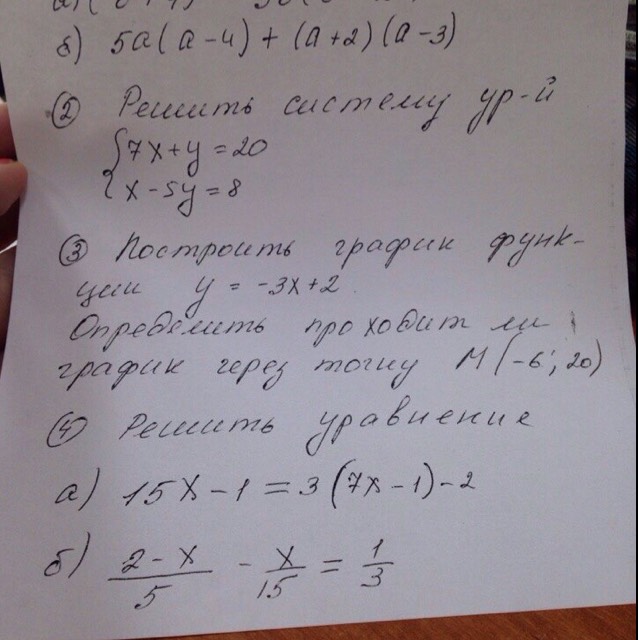 б) 5a(a-4) + (a+2)(a-3)
② Решить систему ур-й
{7x+y=20
x-5y=8
③ Построить график функ-
ции y = -3x+2
Определить проходит ли
график через точку M(-6; 20)
④ Решить уравнение
а) 15x-1 = 3(7x-1)-2
б) (2-x)/5 - x/15 = 1/3